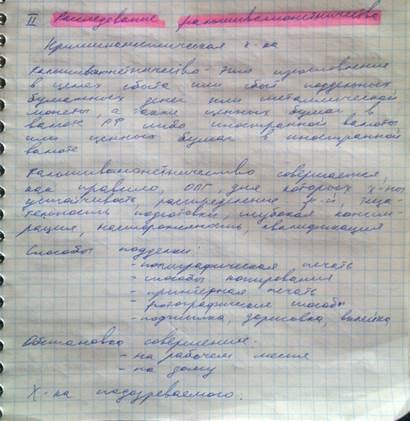 II Расследование фальшивомонетничества
Криминалистическая х-ка
Фальшивомонетничество – это изготовление
в целях сбыта или сбыт поддельных
бумажных денег или металлической
монеты а также ценных бумаг в
валюте РФ либо иностранной валюты
или ценных бумаг в иностранной
валюте
Фальшивомонетничество совершается,
как правило, ОПГ, для которых х-ны,
устойчивость, распределение р-й, тща-
тельность подготовки, глубокая конспи-
рация, настороженность, квалификация
Способы подделки:
- полиграфическая печать
- способы копирования
- принтерная печать
- фотографические способы
- подчистка, зарисовка, вклейка
Обстановка совершения:
- на рабочем месте
- на дому
Х-ка подозреваемого: